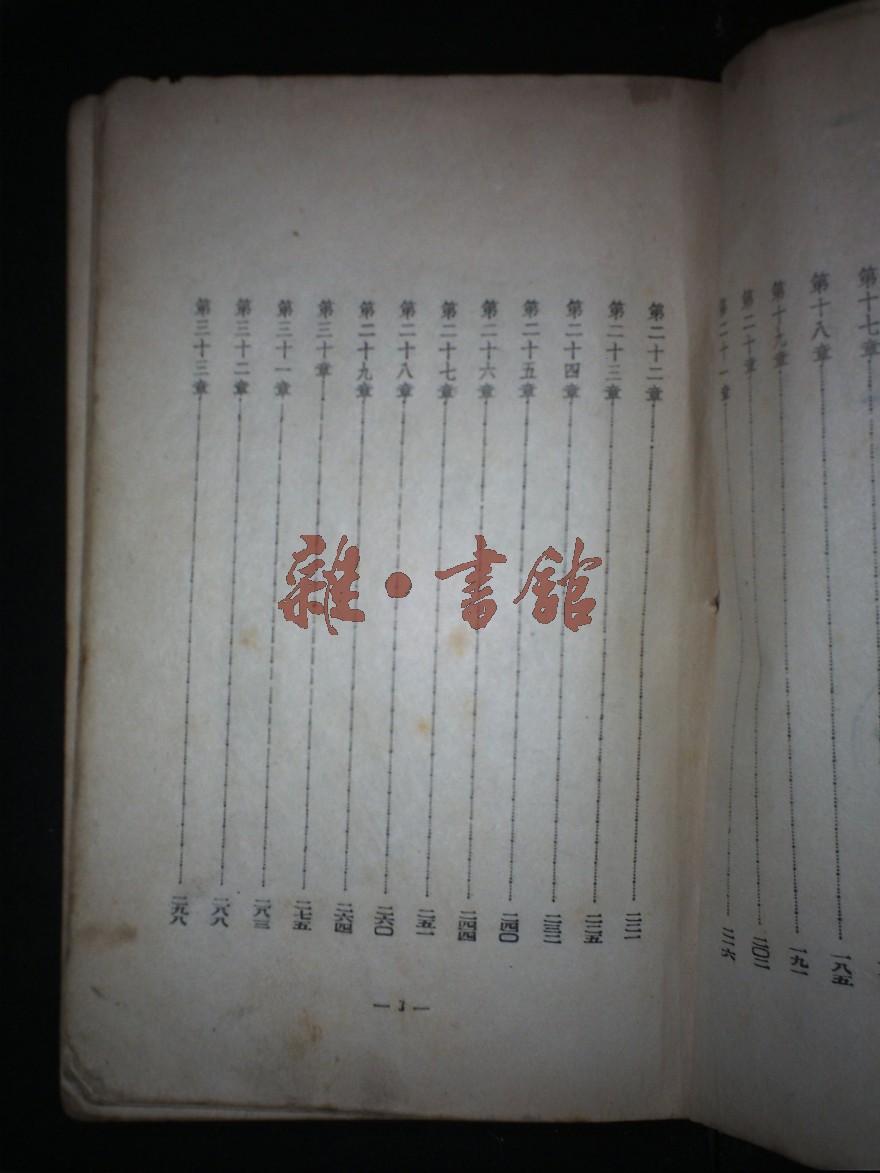 第十七章
第十八章……一八五
第十九章……一九一
第二十章……二〇二
第二十一章
第二十二章
第二十三章……二二五
第二十四章……二三二
第二十五章……二四〇
第二十六章……二四四
第二十七章……二五一
第二十八章……二六〇
第二十九章……二六四
第三十章……二七五
第三十一章……二八三
第三十二章……二八八
第三十三章……二九八
— 3 —
雜·書館